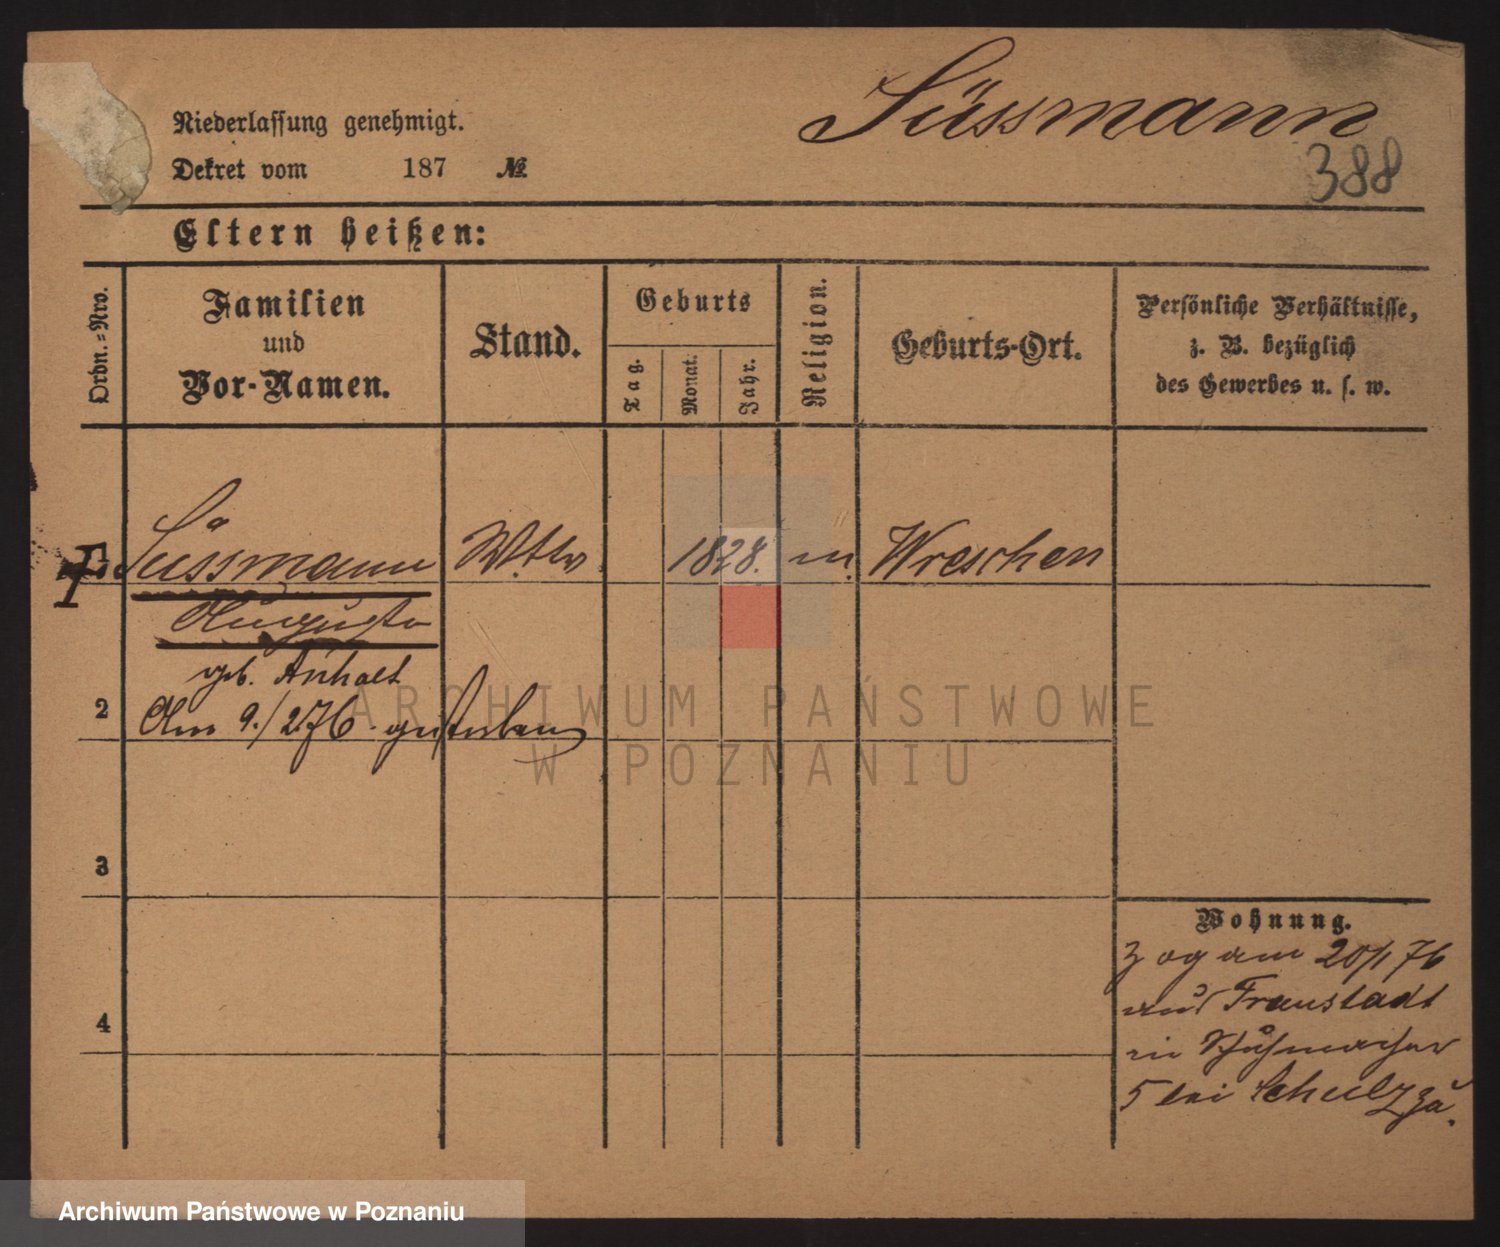 Süssmann
388
Niederlassung genehmigt.
Dekret vom 187 №
Eltern heißen:
Ordn.=Nro.
Familien
und
Vor-Namen.
Stand.
Geburts
Tag.
Monat.
Jahr.
Religion.
Geburts-Ort.
Persönliche Verhältnisse,
z. B. bezüglich
des Gewerbes u. s. w.
Süssmann Wttw 1828. m. Wreschen
Auguste
geb. Anhalt
2 Am 9./2 76. gestorben
3
4
Wohnung.
Zog am 20/1 76
aus Fraustadt
in Schuhmacher
5 bei Schulz zu.
ARCHIWUM PAŃSTWOWE
W POZNANIU
Archiwum Państwowe w Poznaniu